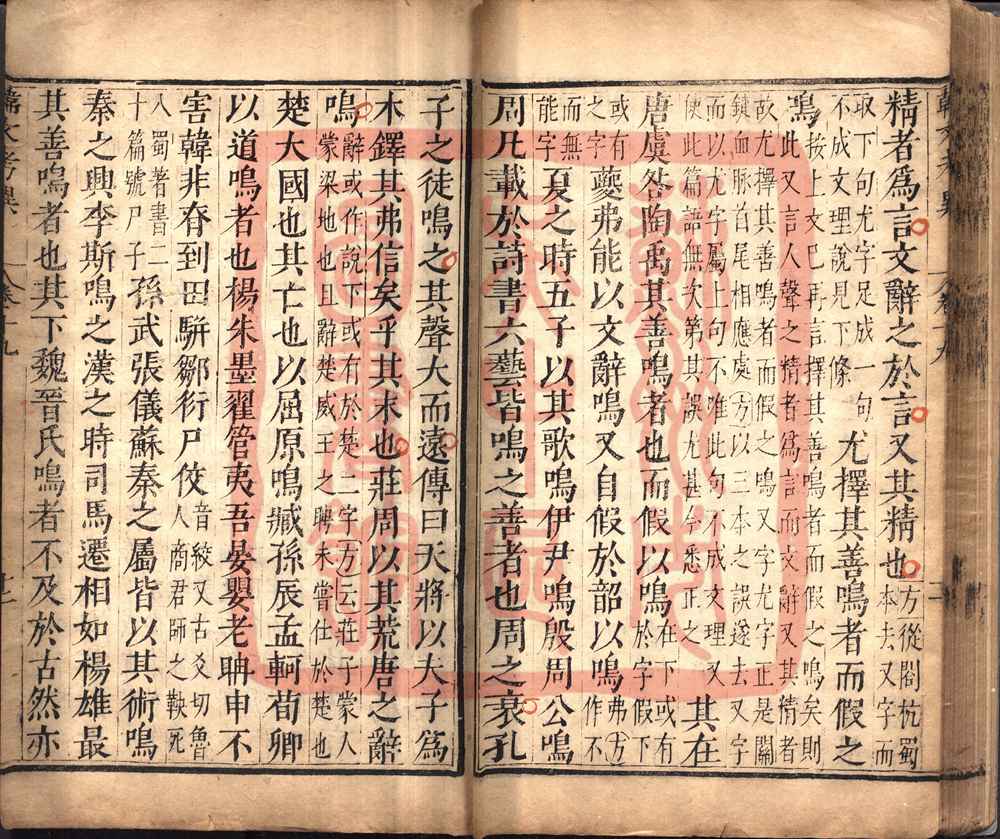 精者爲言文辭之於言又其精也方從閣杭蜀本去又字而
取下句尤字足成一句不成文理說見下條尤擇其善鳴者而假之
鳴按上文已再言擇其善鳴者而假之鳴矣則此又言人聲之精者爲言而文辭又其精者
故尤擇其善鳴者而假之鳴又字尤字正是關鍵血脉首尾相應處方以三本之誤遂去又字
而以尤字屬上句不唯此句不成文理又使此篇語無次第其誤尤甚今悉正之其在
唐虞咎陶禹其善鳴者也而假以鳴在下或有於字假下
或有之字夔弗能以文辭鳴又自假於韶以鳴弗方作不
而無能字夏之時五子以其歌鳴伊尹鳴殷周公鳴
周凡載於詩書六藝皆鳴之善者也周之衰孔
子之徒鳴之其聲大而遠傳曰天將以夫子爲
木鐸其弗信矣乎其末也莊周以其荒唐之辭
鳴辭或作說下或有於楚二字方云莊子蒙人蒙梁地也且辭楚威王之聘未嘗仕於楚也
楚大國也其亡也以屈原鳴臧孫辰孟軻荀卿
以道鳴者也楊朱墨翟管夷吾晏嬰老聃申不
害韓非眘到田駢鄒衍尸佼音絞又古爻切魯人商君師之鞅死
入蜀著書二十篇號尸子孫武張儀蘇秦之屬皆以其術鳴
秦之興李斯鳴之漢之時司馬遷相如楊雄最
其善鳴者也其下魏晉氏鳴者不及於古然亦
韓文考異